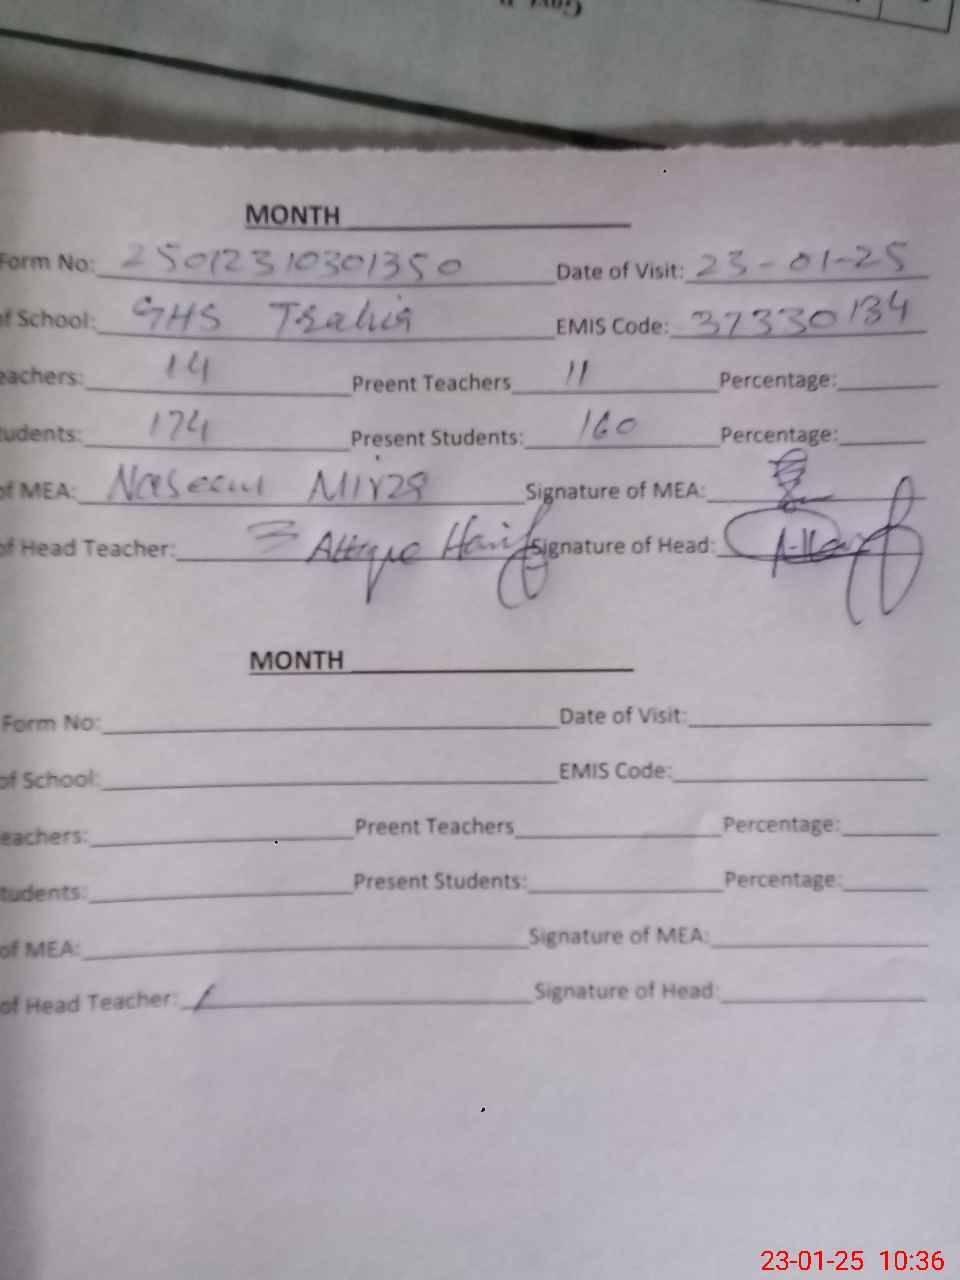 MONTH
Form No: 2501231030 1350 Date of Visit: 23-01-25
of School: GHS Tralia EMIS Code: 37330134
eachers: 14 Preent Teachers 11 Percentage:
tudents: 174 Present Students: 160 Percentage:
of MEA: Naseem Mirza Signature of MEA:
of Head Teacher: Signature of Head:
MONTH
Form No: Date of Visit:
of School: EMIS Code:
eachers: Preent Teachers Percentage:
tudents: Present Students: Percentage:
of MEA: Signature of MEA:
of Head Teacher: Signature of Head:
23-01-25 10:36